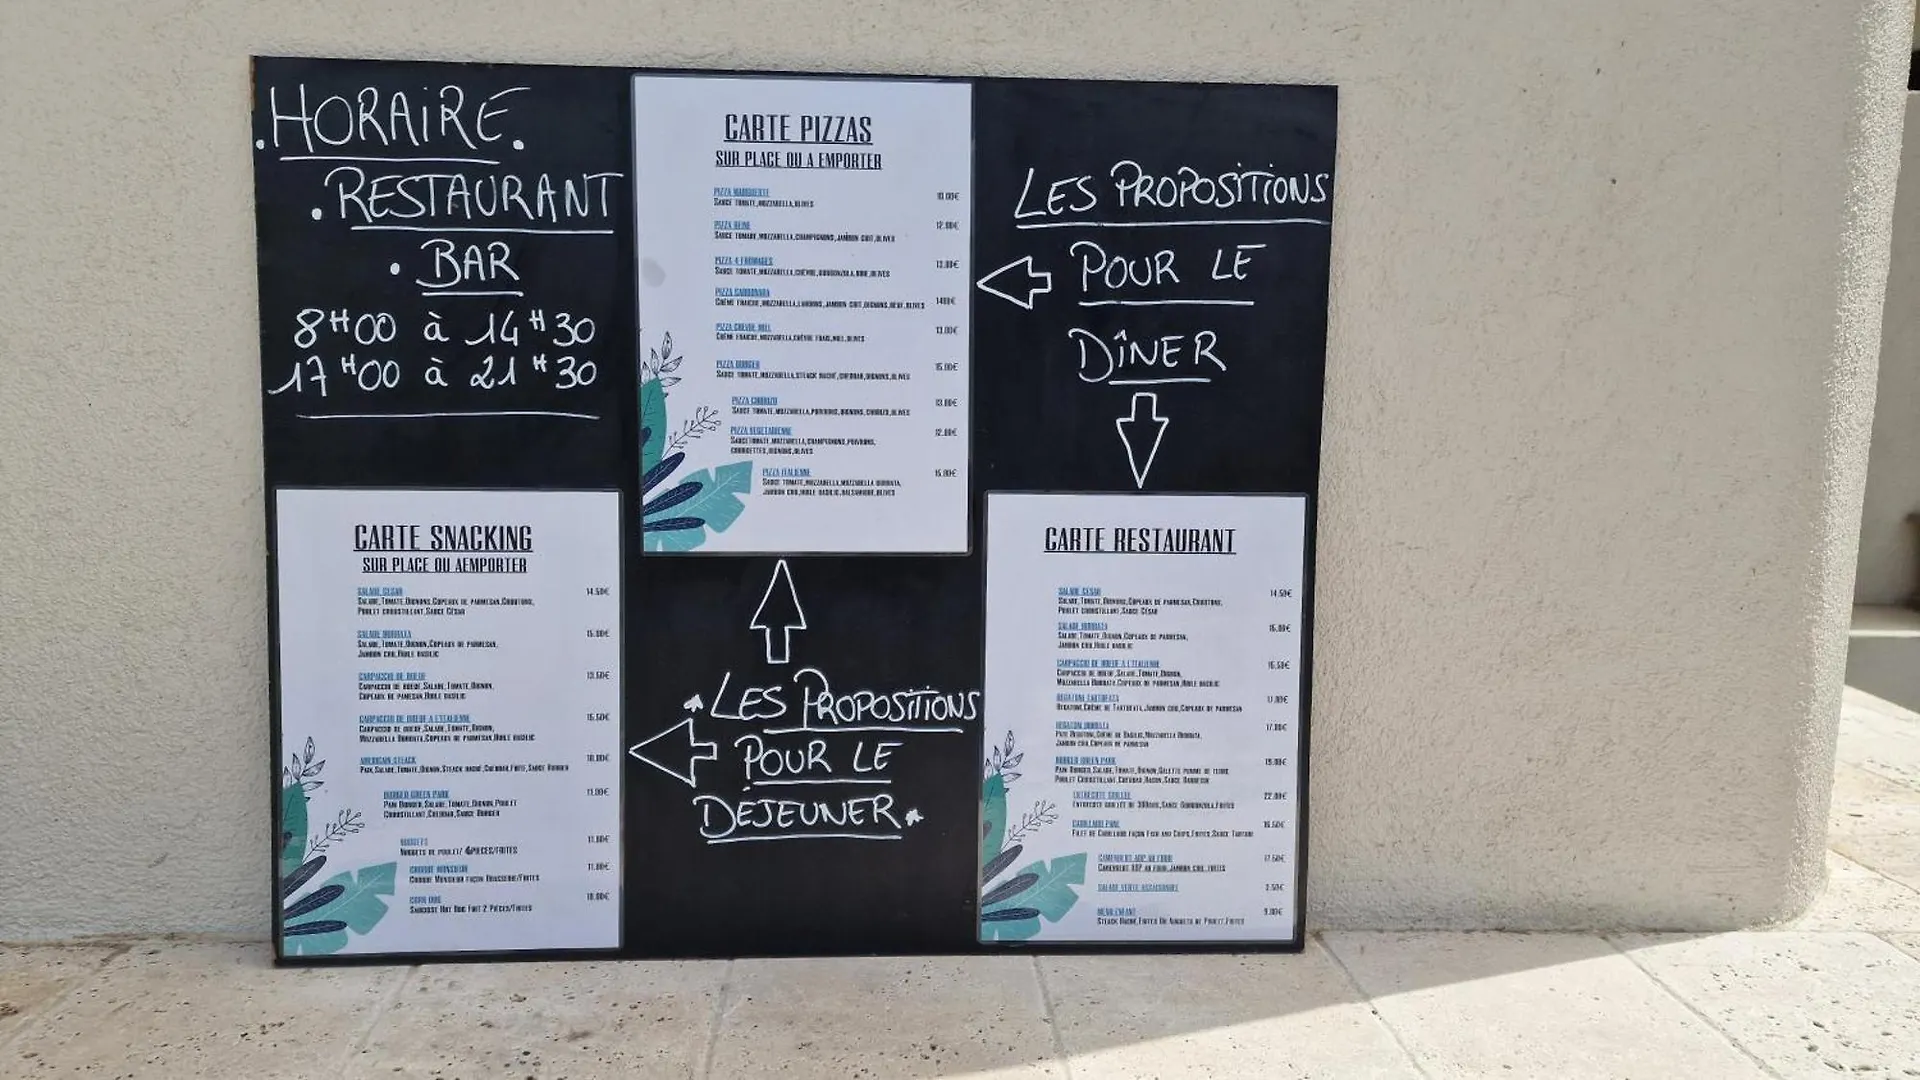 .HORAIRE.
.RESTAURANT
.BAR
8H00 à 14H30
17H00 à 21H30
CARTE PIZZAS
SUR PLACE OU A EMPORTER
PIZZA MARGUERITE 10.00€
SAUCE TOMATE,MOZZARELLA,OLIVES
PIZZA REINE 12.00€
SAUCE TOMATE,MOZZARELLA,CHAMPIGNONS,JAMBON CUIT,OLIVES
PIZZA 4 FROMAGES 13.00€
SAUCE TOMATE,MOZZARELLA,CHÈVRE,GORGONZOLA,BRIE,OLIVES
PIZZA CARBONARA
CRÈME FRAICHE,MOZZARELLA,LARDONS,JAMBON CUIT,OIGNONS,OEUF,OLIVES
PIZZA CHÈVRE MIEL 13.00€
CRÈME FRAICHE,MOZZARELLA,CHÈVRE FRAIS,MIEL,OLIVES
PIZZA BURGER 15.00€
SAUCE TOMATE,MOZZARELLA,STEACK HACHÉ,CHEDDAR,OIGNONS,OLIVES
PIZZA CHORIZO 13.00€
SAUCE TOMATE,MOZZARELLA,POIVRONS,OIGNONS,CHORIZO,OLIVES
PIZZA VEGETARIENNE 12.00€
SAUCETOMATE,MOZZARELLA,CHAMPIGNONS,POIVRONS,
COURGETTES,OIGNONS,OLIVES
PIZZA ITALIENNE 15.00€
SAUCE TOMATE,MOZZARELLA,MOZZARELLA BURRATA,
JAMBON CRU,HUILE BASILIC,BALSAMIQUE,OLIVES
LES PROPOSITIONS
POUR LE
DÎNER
CARTE SNACKING
SUR PLACE OU AEMPORTER
SALADE CÉSAR 14.50€
SALADE,TOMATE,OIGNONS,COPEAUX DE PARMESAN,CROUTONS,
POULET CROUSTILLANT,SAUCE CÉSAR
SALADE BURRATA 15.00€
SALADE,TOMATE,OIGNON,COPEAUX DE PARMESAN,
JAMBON CRU,HUILE BASILIC
CARPACCIO DE BOEUF 13.50€
CARPACCIO DE BOEUF,SALADE,TOMATE,OIGNON,
COPEAUX DE PAMESAN,HUILE BASILIC
CARPACCIO DE BOEUF A L'ITALIENNE 15.50€
CARPACCIO DE BOEUF,SALADE,TOMATE,OIGNON,
MOZZARELLA BURRATA,COPEAUX DE PARMESAN,HUILE BASILIC
AMERICAIN STEACK 10.00€
PAIN,SALADE,TOMATE,OIGNON,STEACK HACHÉ,CHEDDAR,FRITE,SAUCE BURGER
BURGER GREEN PARK 11.00€
PAIN BURGER,SALADE,TOMATE,OIGNON,POULET
CROUSTILLANT,CHEDDAR,SAUCE BURGER
NUGGETS 11.00€
NUGGETS DE POULET/ 6PIECES/FRITES
CROQUE MONSIEUR 11.00€
CROQUE MONSIEUR FAÇON BRASSERIE/FRITES
CORN DOG 10.00€
SAUCISSE HOT DOG FRIT 2 PIÈCES/FRITES
LES PROPOSITIONS
POUR LE
DÉJEUNER
CARTE RESTAURANT
SALADE CÉSAR 14.50€
SALADE,TOMATE,OIGNONS,COPEAUX DE PARMESAN,CROUTONS,
POULET CROUSTILLANT,SAUCE CÉSAR
SALADE BURRATA 15.00€
SALADE,TOMATE,OIGNON,COPEAUX DE PARMESAN,
JAMBON CRU,HUILE BASILIC
CARPACCIO DE BOEUF A L'ITALIENNE 15.50€
CARPACCIO DE BOEUF,SALADE,TOMATE,OIGNON,
MOZZARELLA BURRATA,COPEAUX DE PARMESAN,HUILE BASILIC
RIGATONI TARTUFATA 17.00€
RIGATONI,CRÈME DE TARTUFATA,JAMBON CRU,COPEAUX DE PARMESAN
RIGATONI BURRATA 17.00€
PATE RIGATONI,CRÈME DE BASILIC,MOZZARELLA BURRATA,
JAMBON CRU,COPEAUX DE PARMESAN
BURGER GREEN PARK 19.00€
PAIN BURGER,SALADE,TOMATE,OIGNON,GALETTE POMME DE TERRE
POULET CROUSTILLANT,CHEDDAR,BACON,SAUCE BARBECUE
ENTRECOTE GRILLÉE 22.00€
ENTRECOTE GRILLÉE DE 300GRS,SAUCE GORGONZOLA,FRITES
CABILLAUD PANÉ 16.50€
FILET DE CABILLAUD FAÇON FISH AND CHIPS,FRITES,SAUCE TARTARE
CAMEMBERT AOP AU FOUR 17.50€
CAMEMBERT AOP AU FOUR,JAMBON CRU,FRITES
SALADE VERTE ASSAISONNÉE 3.50€
MENU ENFANT 9.00€
STEACK HACHÉ,FRITES OU NUGGETS DE POULET,FRITES